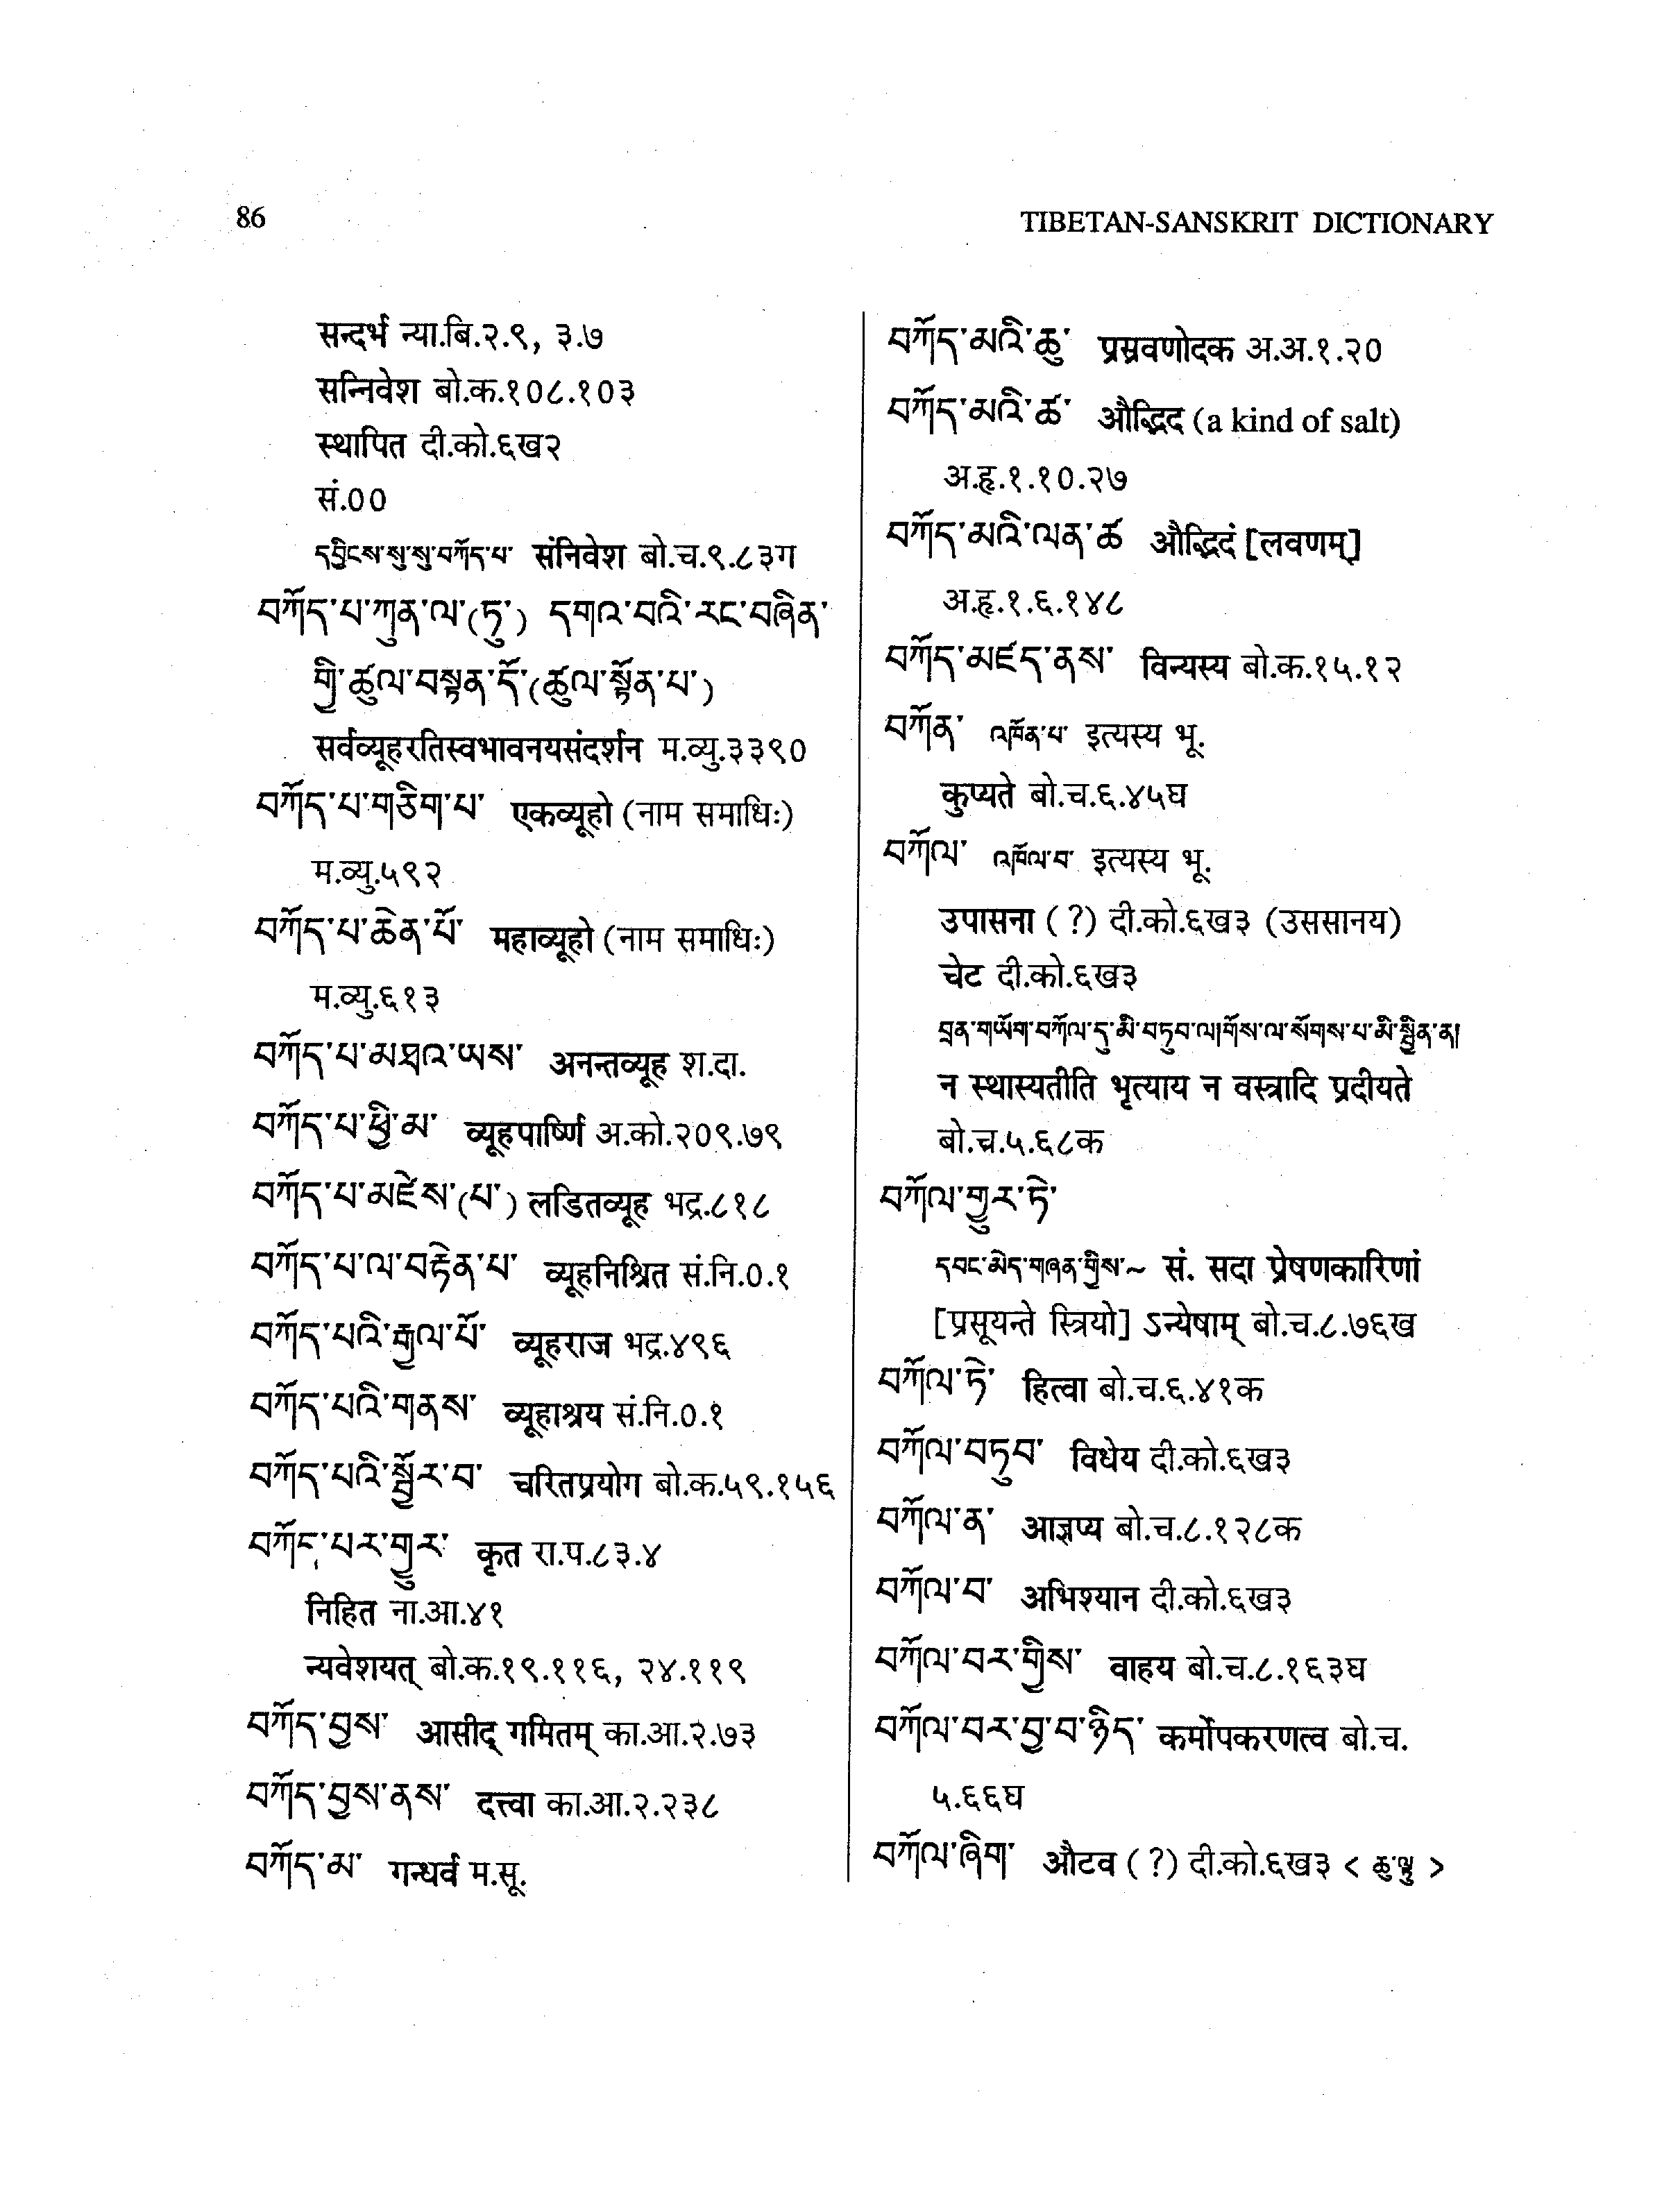 86
TIBETAN-SANSKRIT DICTIONARY
सन्दर्भ न्या.बि.२.९, ३.७
सन्निवेश बो.क.१०८.१०३
स्थापित दी.को.६ख२
सं.००
དབྱིངས་སུ་སུ་བཀོད་པ་ संनिवेश बो.च.९.८३ग
བཀོད་པ་ཀུན་ལ་(ཏུ་) དགའ་བའི་རང་བཞིན་
གྱི་ཚུལ་བསྟན་དོ་(ཚུལ་སྟོན་པ་)
सर्वव्यूहरतिस्वभावनयसंदर्शन म.व्यु.३३९०
བཀོད་པ་གཅིག་པ་ एकव्यूहो (नाम समाधिः)
म.व्यु.५९२
བཀོད་པ་ཆེན་པོ་ महाव्यूहो (नाम समाधिः)
म.व्यु.६१३
བཀོད་པ་མཐའ་ཡས་ अनन्तव्यूह श.दा.
བཀོད་པ་ཕྱི་མ་ व्यूहपार्ष्णि अ.को.२०९.७९
བཀོད་པ་མཛེས་(པ་) लडितव्यूह भद्र.८१८
བཀོད་པ་ལ་བརྟེན་པ་ व्यूहनिश्रित सं.नि.०.१
བཀོད་པའི་རྒྱལ་པོ་ व्यूहराज भद्र.४९६
བཀོད་པའི་གནས་ व्यूहाश्रय सं.नि.०.१
བཀོད་པའི་སྦྱོར་བ་ चरितप्रयोग बो.क.५९.१५६
བཀོད་པར་གྱུར་ कृत रा.प.८३.४
निहित ना.आ.४१
न्यवेशयत् बो.क.१९.११६, २४.११९
བཀོད་བྱས་ आसीद् गमितम् का.आ.२.७३
བཀོད་བྱས་ནས་ दत्त्वा का.आ.२.२३८
བཀོད་མ་ गन्धर्व म.सू.
བཀོད་མའི་ཆུ་ प्रस्रवणोदक अ.अ.१.२०
བཀོད་མའི་ཚ་ औद्भिद (a kind of salt)
अ.हृ.१.१०.२७
བཀོད་མའི་ལན་ཚ औद्भिदं [लवणम्]
अ.हृ.१.६.१४८
བཀོད་མཛད་ནས་ विन्यस्य बो.क.१५.१२
བཀོན་ འཁོན་པ་ इत्यस्य भू.
कुप्यते बो.च.६.४५घ
བཀོལ་ འཁོལ་བ་ इत्यस्य भू.
उपासना (?) दी.को.६ख३ (उससानय)
चेट दी.को.६ख३
བྲན་གཡོག་བཀོལ་དུ་མི་བཏུབ་ལ།གོས་ལ་སོགས་པ་མི་སྦྱིན་ན།
न स्थास्यतीति भृत्याय न वस्त्रादि प्रदीयते
बो.च.५.६८क
བཀོལ་གྱུར་ཏེ་
དབང་མེད་གཞན་གྱིས་~ सं. सदा प्रेषणकारिणां
[प्रसूयन्ते स्त्रियो] ऽन्येषाम् बो.च.८.७६ख
བཀོལ་ཏེ་ हित्वा बो.च.६.४१क
བཀོལ་བཏུབ་ विधेय दी.को.६ख३
བཀོལ་ན་ आज्ञप्य बो.च.८.१२८क
བཀོལ་བ་ अभिश्यान दी.को.६ख३
བཀོལ་བར་གྱིས་ वाहय बो.च.८.१६३घ
བཀོལ་བར་བྱ་བ་ཉིད་ कर्मोपकरणत्व बो.च.
५.६६घ
བཀོལ་ཞིག་ औटव (?) दी.को.६ख३ < >